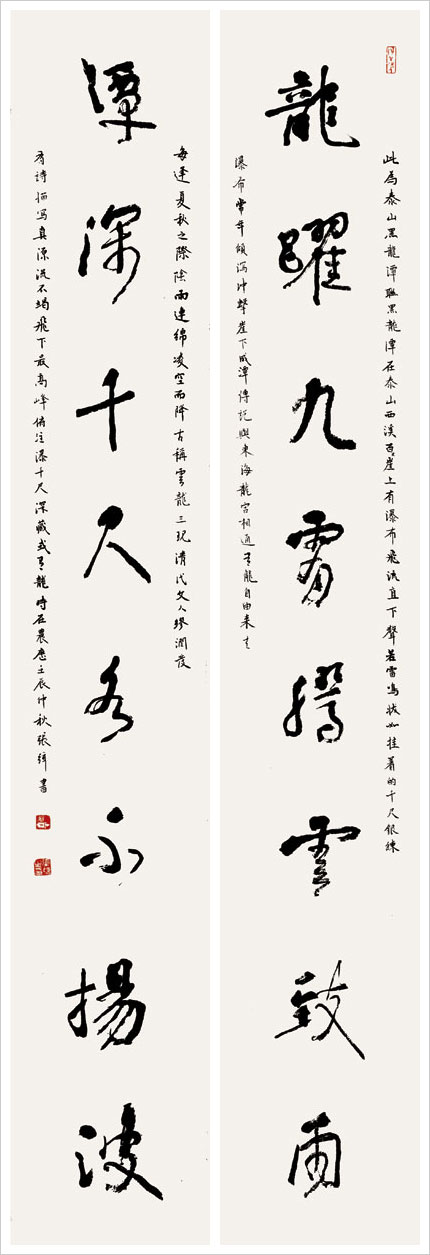 此為泰山黑龍潭聯黑龍潭在泰山西溪百崖上有瀑布飛流直下聲若雷鳴狀如挂着的千尺銀練
龍躍九霄騰雲致雨
瀑布常年傾瀉沖擊崖下成潭傳說與東海龍宮相通有龍自由來去
每逢夏秋之際陰雨連綿凌空而降古稱雲龍三現清代文人繆潤發
潭深千尺水不揚波
有詩描寫真源流不竭飛下最高峰俯注瀑千尺深藏或有龍時在農歷壬辰仲秋張書